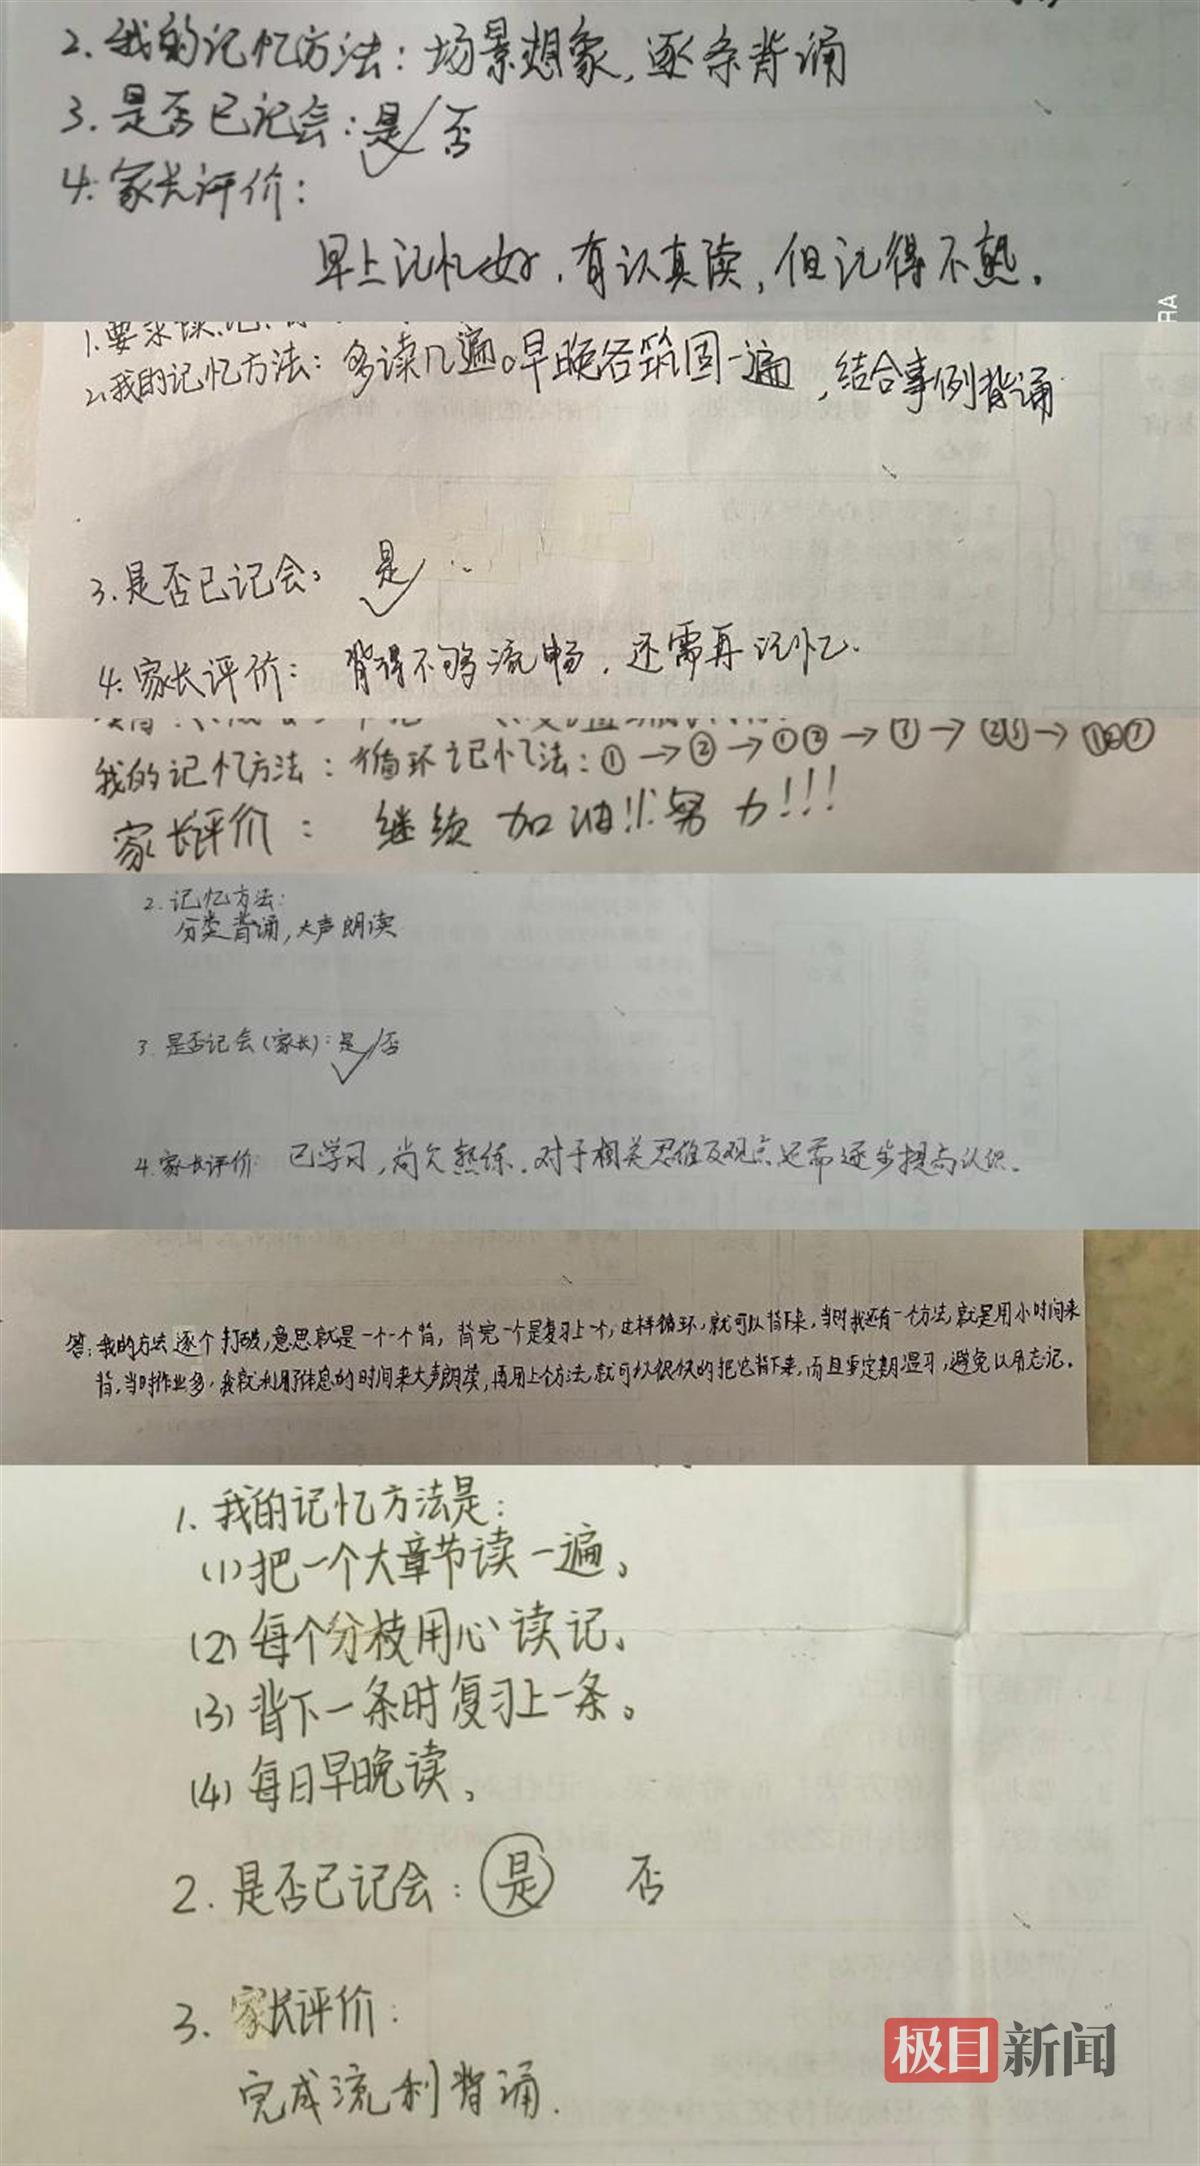 2. 我的记忆方法：场景想象，逐条背诵
3. 是否已记会：是/否
4. 家长评价：
早上记忆好，有认真读，但记得不熟。
RA
1. 要求读、记、背
2. 我的记忆方法：多读几遍。早晚各巩固一遍，结合事例背诵
3. 是否已记会： 是/
4. 家长评价：背得不够流畅，还需再记忆.
我的记忆方法：循环记忆法：①→②→①②→
家长评价：继续加油！！努力！！！
2. 记忆方法：
分类背诵，大声朗读
3. 是否记会(家长)：是/否
4. 家长评价：已学习，尚欠熟练，对于相关思维及观点还需逐步提高认识。
答：我的方法逐个打破，意思就是一个一个背，背完一个是复习上一个，这样循环，就可以背下来，当时我还有一个方法，就是用小时间来
背，当时作业多，我就利用休息的时间来大声朗读，再用上个方法，就可以很快的把它背下来，而且要定期温习，避免以后忘记。
1. 我的记忆方法是：
(1) 把一个大章节读一遍。
(2) 每个分枝用心读记。
(3) 背下一条时复习上一条。
(4) 每日早晚读。
2. 是否已记会：是 否
3. 家长评价：
完成流利背诵.
极目新闻